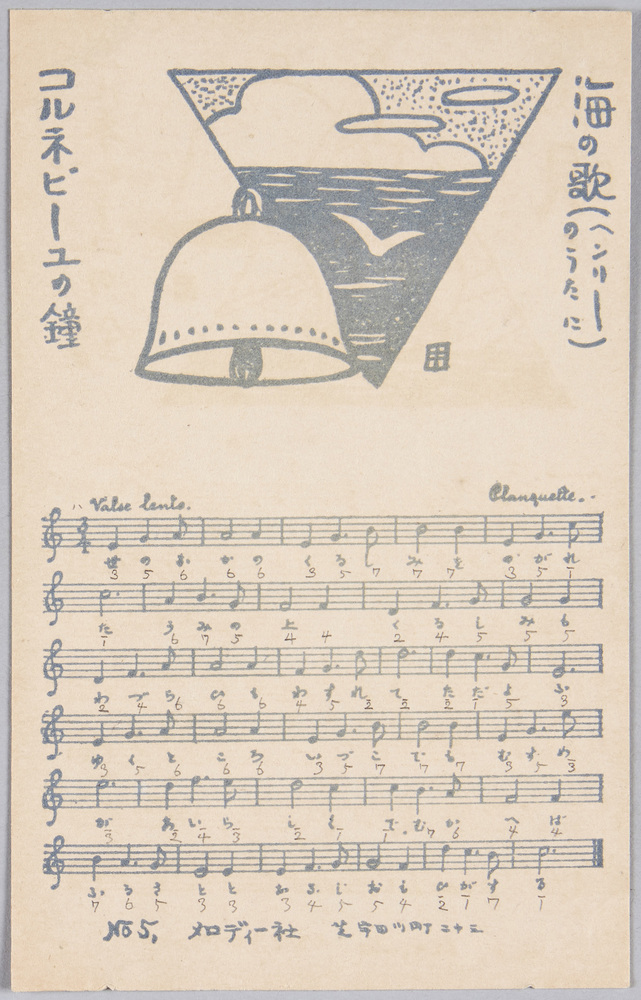 海の歌(ヘンリーのうたに)
コルネビーユの鐘
Valse lento.
Planquette.
3 4
世 の お か の く る し み を の が れ
3 5 6 6 6 3 5 7 7 7 3 5 1
た う み の 上 く る し み も
1 6 7 5 4 4 2 4 5 5 5
わ づ ら ひ も わ す れ て た だ よ ふ
2 4 6 6 6 4 5 2 2 2 1 5 3
ゆ く と こ ろ い づ こ で も む す め
3 5 6 6 6 3 5 7 7 7 3 5 3
が あ い ら し く で む か へ ば
3 2 4 3 2 1 1 7 6 4 4
ふ る さ と と お な じ お も ひ が す る
7 6 5 3 3 3 4 5 5 4 2 1 7 1
No 5, メロディー社 芝宇田川町二十三